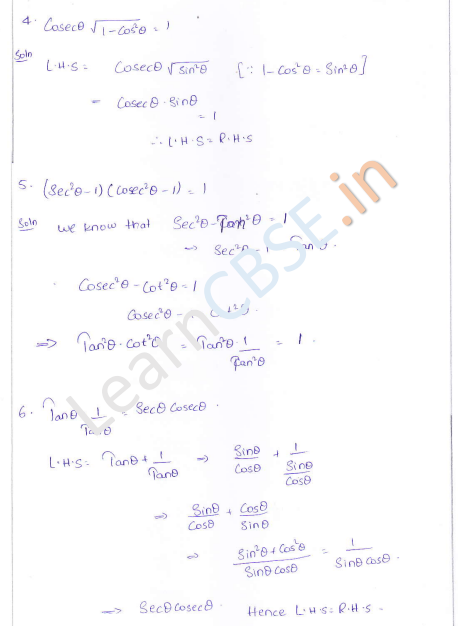 4. Cosecθ √1-Cos²θ = 1
Soln
L.H.S = Cosecθ √Sin²θ [∵ 1-Cos²θ = Sin²θ]
= Cosecθ · Sinθ
= 1
∴ L.H.S = R.H.S
5. (Sec²θ-1) (Cosec²θ-1) = 1
Soln we know that Sec²θ-Tan²θ = 1
⇒ Sec²θ - 1
Cosec²θ - Cot²θ = 1
Cosec²θ -
⇒ Tan²θ · Cot²θ = Tan²θ · 1/Tan²θ = 1.
6. Tanθ 1/Tanθ = Secθ Cosecθ.
L.H.S = Tanθ + 1/Tanθ ⇒ Sinθ/Cosθ + 1/(Sinθ/Cosθ)
⇒ Sinθ/Cosθ + Cosθ/Sinθ
⇒ Sin²θ + Cos²θ/Sinθ Cosθ = 1/Sinθ Cosθ.
⇒ Secθ Cosecθ. Hence L.H.S = R.H.S -
LearnCBSE.in